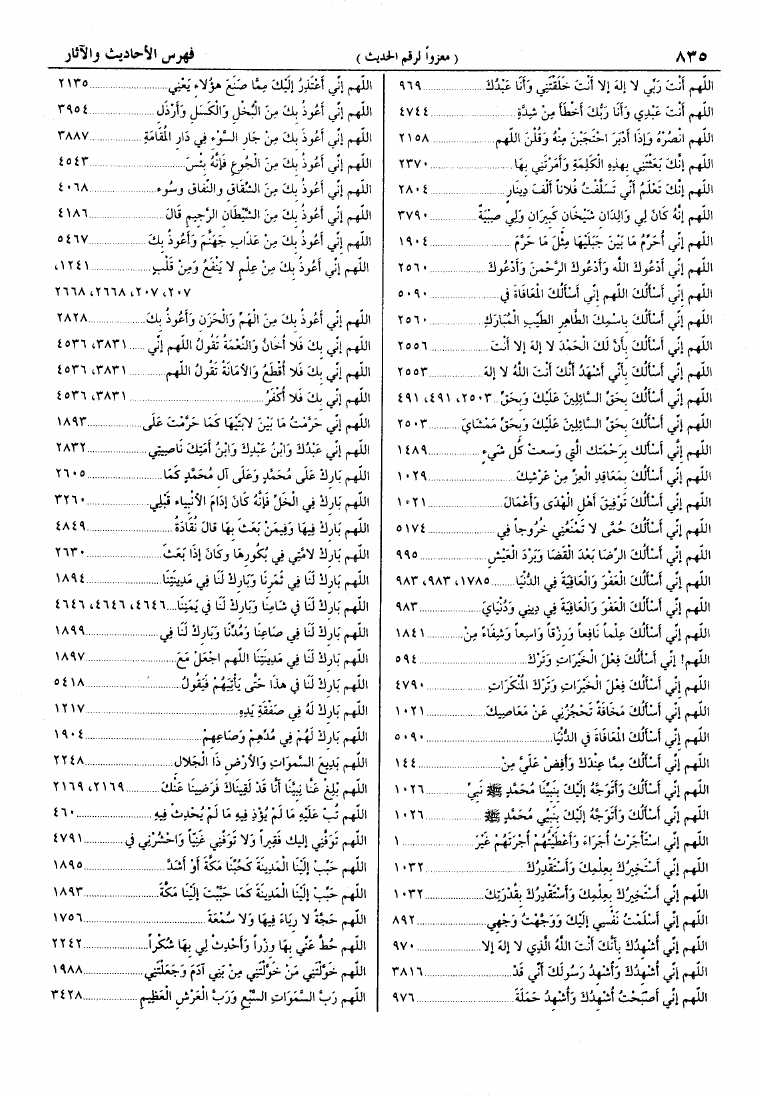 ٨٣٥ ( معزواً لرقم الحديث ) فهرس الأحاديث والآثار
اللّهم أَنْتَ رَبِّي لا إلهَ إلا أَنْتَ خَلَقْتَنِي وَأَنَا عَبْدُكَ ٩٦٩
اللّهم أَنْتَ عَبْدِي وَأَنَا رَبُّكَ أَخْطَأَ مِنْ شِدَّةِ ٤٧٤٤
اللّهم انْصُرْهُ وَإِذَا أَدْبَرَ احْتَجَبْنَ مِنْهُ وَقُلْنَ اللّهم ٢١٥٨
اللّهم إِنَّكَ بَعَثْتَنِي بِهذِهِ الْكَلِمَةِ وَأَمَرْتَنِي بِهَا ٢٣٧٠
اللّهم إِنَّكَ تَعْلَمُ أَنِّي تَسَلَّفْتُ فُلاناً أَلْفَ دِينَارٍ ٢٨٠٤
اللّهم إِنَّهُ كَانَ لِي وَالِدَانِ شَيْخَانِ كَبِيرَانِ وَلِي صِبْيَةٌ ٣٧٩٠
اللّهم إِنِّي أُحَرِّمُ مَا بَيْنَ جَبَلَيْهَا مِثْلَ مَا حَرَّمَ ١٩٠٤
اللّهم إِنِّي أَدْعُوكَ الله وَأَدْعُوكَ الرَّحْمنَ وَأَدْعُوكَ ٢٥٦٠
اللّهم إِنِّي أَسْأَلُكَ اللّهم إِنِّي أَسْأَلُكَ الْمُعَافَاةَ فِي ٥٠٩٠
اللّهم إِنِّي أَسْأَلُكَ بِاسْمِكَ الطَّاهِرِ الطَّيِّبِ الْمُبَارَكِ ٢٥٦٠
اللّهم إِنِّي أَسْأَلُكَ بِأَنَّ لَكَ الْحَمْدَ لا إِلهَ إِلا أَنْتَ ٢٥٥٦
اللّهم إِنِّي أَسْأَلُكَ بِأَنِّي أَشْهَدُ أَنَّكَ أَنْتَ اللَّهُ لا إِلهَ ٢٥٥٣
اللّهم إِنِّي أَسْأَلُكَ بِحَقِّ السَّائِلِينَ عَلَيْكَ وَبِحَقِّ ٢٥٠٣، ٤٩١، ٤٩١
اللّهم إِنِّي أَسْأَلُكَ بِحَقِّ السَّائِلِينَ عَلَيْكَ وَبِحَقِّ مَمْشَايَ ٢٥٠٣
اللّهم إِنِّي أَسْأَلك بِرَحْمَتك الَّتِي وَسعت كُلّ شَيءٍ ١٤٨٩
اللّهم إِنِّي أَسْأَلُكَ بِمَعَاقِدِ الْعِزِّ مِنْ عَرْشِكَ ١٠٢٩
اللّهم إِنِّي أَسْأَلُكَ تَوْفِيقَ أَهْلِ الْهُدَى وَأَعْمَالَ ١٠٢١
اللّهم إِنِّي أَسْأَلُكَ حُمَّى لا تَمْنَعُنِي خُرُوجاً فِي ٥١٧٤
اللّهم إِنِّي أَسْأَلُكَ الرِّضَا بَعْدَ الْقَضَا وَبَرْدَ الْعَيْشِ ٩٩٥
اللّهم إِنِّي أَسْأَلُكَ الْعَفْوَ وَالْعَافِيَةَ فِي الدُّنْيَا ١٧٨٥، ٩٨٣، ٩٨٣
اللّهم إِنِّي أَسْأَلُكَ الْعَفْوَ وَالْعَافِيَةَ فِي دِينِي وَدُنْيَايَ ٩٨٣
اللّهم إِنِّي أَسْأَلُكَ عِلْماً نَافِعاً وَرِزْقاً وَاسِعاً وَشِفَاءً مِنْ ١٨٤١
اللّهم! إِنِّي أَسْأَلُكَ فِعْلَ الْخَيْرَاتِ وَتَرْكَ ٥٩٤
اللّهم إِنِّي أَسْأَلُكَ فِعْلَ الْخَيْرَاتِ وَتَرْكَ الْمُنْكَرَاتِ ٤٧٩٠
اللّهم إِنِّي أَسْأَلُكَ مَخَافَةً تَحْجُزُنِي عَنْ مَعَاصِيكَ ١٠٢١
اللّهم إِنِّي أَسْأَلُكَ الْمُعَافَاةَ فِي الدُّنْيَا ٥٠٩٠
اللّهم إِنِّي أَسْأَلُكَ مِمَّا عِنْدَكَ وَأَفِضْ عَلَيَّ مِنْ ١٤٤
اللّهم إِنِّي أَسْأَلُكَ وَأَتَوَجَّهُ إِلَيْكَ بِنَبِيِّنَا مُحَمَّدٍ ﷺ نَبِيِّ ١٠٢٦
اللّهم إِنِّي أَسْأَلُكَ وَأَتَوَجَّهُ إِلَيْكَ بِنَبِيِّي مُحَمَّدٍ ﷺ ١٠٢٦
اللّهم إِنِّي اسْتَأْجَرْتُ أُجَرَاءَ وَأَعْطَيْتُهُمْ أُجْرَتَهُمْ غَيْرَ ١
اللّهم إِنِّي أَسْتَخِيرُكَ بِعِلْمِكَ وَأَسْتَقْدِرُكَ ١٠٣٢
اللّهم إِنِّي أَسْتَخِيرُكَ بِعِلْمِكَ وَأَسْتَقْدِرُكَ بِقُدْرَتِكَ ١٠٣٢
اللّهم إِنِّي أَسْلَمْتُ نَفْسِي إِلَيْكَ وَوَجَّهْتُ وَجْهِي ٨٩٢
اللّهم إِنِّي أُشْهِدُكَ بِأَنَّكَ أَنْتَ اللَّهُ الَّذِي لا إِلهَ إِلا ٩٧٠
اللّهم إِنِّي أُشْهِدُكَ وَأُشْهِدُ رَسُولَكَ أَنِّي قَدْ ٣٨١٦
اللّهم إِنِّي أَصْبَحْتُ أُشْهِدُكَ وَأُشْهِدُ حَمَلَةَ ٩٧٦
اللّهم إِنِّي أَعْتَذِرُ إِلَيْكَ مِمَّا صَنَعَ هؤُلاءِ يَعْنِي ٢١٣٥
اللّهم إِنِّي أَعُوذُ بِكَ مِنَ الْبُخْلِ وَالْكَسَلِ وَأَرْذَلِ ٣٩٥٤
اللّهم إِنِّي أَعُوذُ بِكَ مِنْ جَارِ السَّوْءِ فِي دَارِ الْمُقَامَةِ ٣٨٨٧
اللّهم إِنِّي أَعُوذُ بِكَ مِنَ الْجُوعِ فَإِنَّهُ بِئْسَ ٤٥٤٣
اللّهم إِنِّي أَعُوذُ بِكَ مِنَ الشِّقَاقِ وَالنِّفَاقِ وَسُوءِ ٤٠٦٨
اللّهم إِنِّي أَعُوذُ بِكَ مِنَ الشَّيْطَانِ الرَّجِيمِ قَالَ ٤١٨٦
اللّهم إِنِّي أَعُوذُ بِكَ مِنْ عَذَابِ جَهَنَّمَ وَأَعُوذُ بِكَ ٥٤٦٧
اللّهم إِنِّي أَعُوذُ بِكَ مِنْ عِلْمٍ لا يَنْفَعُ وَمِنْ قَلْبٍ ١٢٤١،
٢٠٧، ٢٠٧، ٢٦٦٨، ٢٦٦٨
اللّهم إِنِّي أَعُوذُ بِكَ مِنَ الْهَمِّ وَالْحَزَنِ وَأَعُوذُ بِكَ ٢٨٢٨
اللّهم إِنِّي بِكَ فَلا أُخَانُ وَالنِّعْمَةُ تَقُولُ اللّهم إِنِّي ٣٨٣١، ٤٥٣٦
اللّهم إِنِّي بِكَ فَلا أُقْطَعُ وَالأمَانَةُ تَقُولُ اللّهم ٣٨٣١، ٤٥٣٦
اللّهم إِنِّي بِكَ فَلا أُكْفَرُ ٣٨٣١، ٤٥٣٦
اللّهم إِنِّي حَرَّمْتُ مَا بَيْنَ لابَتَيْهَا كَمَا حَرَّمْتَ عَلَى ١٨٩٣
اللّهم إِنِّي عَبْدُكَ وَابْنُ عَبْدِكَ وَابْنُ أَمَتِكَ نَاصِيتِي ٢٨٣٢
اللّهم بَارِكْ عَلَى مُحَمَّدٍ وَعَلَى آلِ مُحَمَّدٍ كَمَا ٢٦٠٥
اللّهم بَارِكْ فِي الْخَلِّ فَإِنَّهُ كَانَ إِدَامَ الأنْبِيَاءِ قَبْلِي ٣٢٦٠
اللّهم بَارِكْ فِيهَا وَفِيمَنْ بَعَثَ بِهَا قالَ نُقَادَةُ ٤٨٤٩
اللّهم بَارِكْ لامَّتِي فِي بُكُورِهَا وكانَ إِذَا بَعَثَ ٢٦٣٠
اللّهم بَارِكْ لَنَا فِي ثَمَرِنَا وَبَارِكْ لَنَا فِي مَدِينَتِنَا ١٨٩٤
اللّهم بَارِكْ لَنَا فِي شَامِنَا وَبَارِكْ لَنَا فِي يَمَنِنَا ٤٦٤٦، ٤٦٤٦، ٤٦٤٦
اللّهم بَارِكْ لَنَا فِي صَاعِنَا وَمُدِّنَا وَبَارِكْ لَنَا فِي ١٨٩٩
اللّهم بَارِكْ لَنَا فِي مَدِينَتِنَا اللّهم اجْعَلْ مَعَ ١٨٩٧
اللّهم بَارِكْ لَنَا فِي هذَا حَتَّى يَأْتِيَهُمْ فَيَقُولُ ٥٤١٨
اللّهم بَارِكْ لَهُ فِي صَفْقَةِ يَدِهِ ١٢١٧
اللّهم بَارِكْ لَهُمْ فِي مُدِّهِمْ وَصَاعِهِمْ ١٩٠٤
اللّهم بَدِيعَ السَّموَاتِ وَالأرْضِ ذَا الْجَلالِ ٢٢٤٨
اللّهم بَلِّغْ عَنَّا نَبِيَّنَا أَنَّا قَدْ لَقِينَاكَ فَرَضِينَا عَنْكَ ٢١٦٩، ٢١٦٩
اللّهم تُبْ عَلَيْهِ مَا لَمْ يُؤْذِ فِيهِ مَا لَمْ يُحْدِثْ فِيهِ ٤٦٠
اللّهم تَوَفَّنِي إليك فَقِيراً وَلا تَوَفَّنِي غَنِيّاً وَاحْشُرْنِي في ٤٧٩١
اللّهم حَبِّبْ إِلَيْنَا الْمَدِينَةَ كَحُبِّنَا مَكَّةَ أَوْ أَشَدَّ ١٨٩٥
اللّهم حَبِّبْ إِلَيْنَا الْمَدِينَةَ كَمَا حَبَّبْتَ إِلَيْنَا مَكَّةَ ١٨٩٣
اللّهم حَجَّةٌ لا رِيَاءَ فِيهَا وَلا سُمْعَةَ ١٧٥٦
اللّهم حُطَّ عَنِّي بِهَا وِزْراً وَأَحْدِثْ لِي بِهَا شُكْراً ٢٢٤٢
اللّهم خَوَّلْتَنِي مَنْ خَوَّلْتَنِي مِنْ بَنِي آدَمَ وَجَعَلْتَنِي ١٩٨٨
اللّهم رَبَّ السَّمَوَاتِ السَّبْعِ وَرَبَّ الْعَرْشِ الْعَظِيمِ ٣٤٢٨